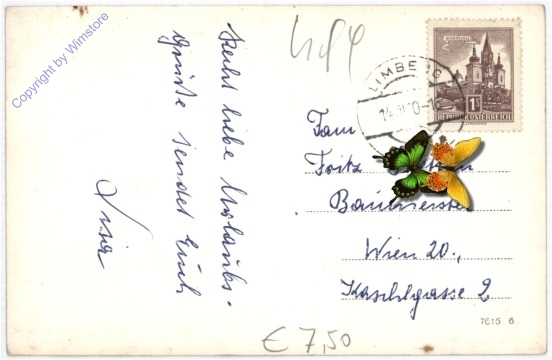 Copyright by Wimstore
Recht liebe Urlaubs-
grüße sendet Euch
484
LIMBERG
1S
REPUBLIK ÖSTERREICH
Fam
Fritz
Baumeister
Wien 20.,
Kaschlgasse 2
7615 6
€ 7,50